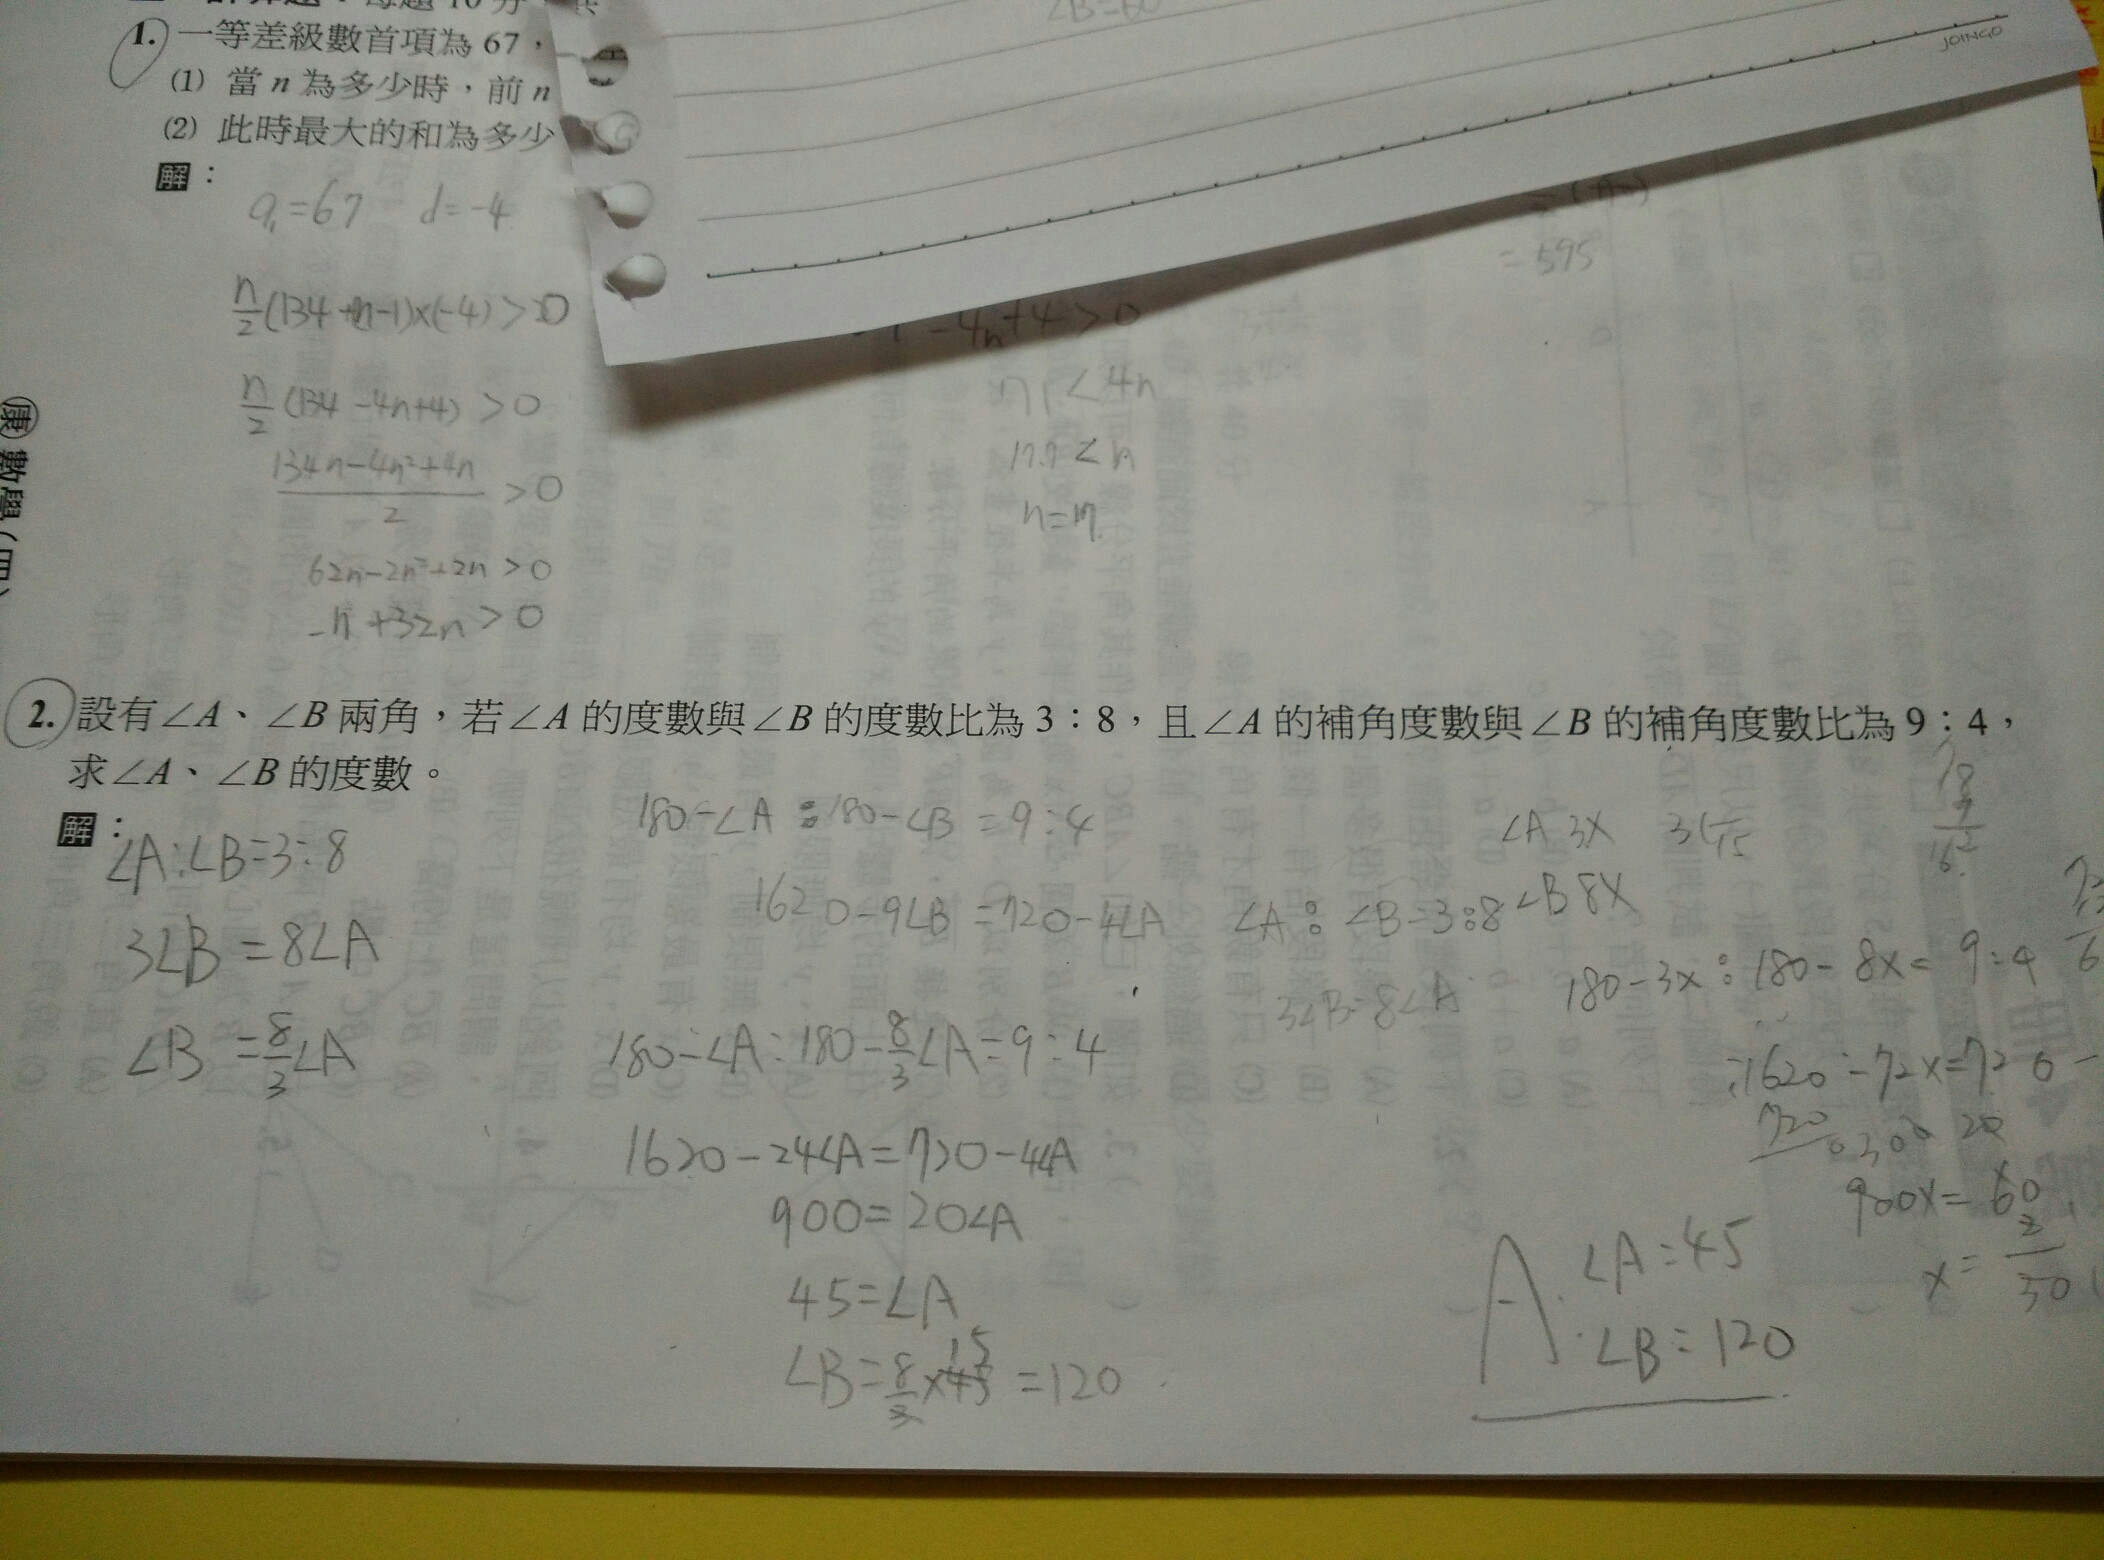 ∠B=60
1. 一等差級數首項為 67，
(1) 當 n 為多少時，前 n
(2) 此時最大的和為多少
解：
JOINGO
a₁=67 d=-4
=595
n/2(134+(n-1)×(-4)>0
-4n+4>0
n/2(134-4n+4)>0
71<4n
(134n-4n²+4n)/2>0
17.7<n
n=17
62n-2n²+2n>0
-n+32n>0
康 數學(四)
2. 設有∠A、∠B 兩角，若∠A 的度數與∠B 的度數比為 3：8，且∠A 的補角度數與∠B 的補角度數比為 9：4，
求∠A、∠B 的度數。
解：
∠A:∠B=3:8
3∠B=8∠A
∠B=8/3∠A
180-∠A:180-∠B=9:4
1620-9∠B=720-4∠A
180-∠A:180-8/3∠A=9:4
1620-24∠A=720-4∠A
900=20∠A
45=∠A
∠B=8/3×45 15=120
∠A:∠B=3:8
3∠B=8∠A
∠A 3X
∠B 8X
180-3x:180-8x=9:4
1620-72x=720-
720
900x=60
x=
A:∠A=45
∠B=120